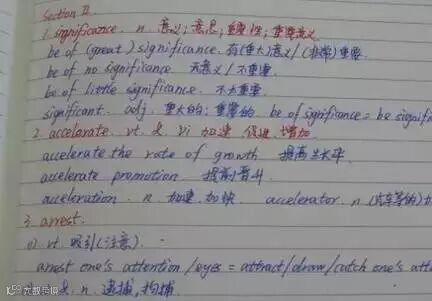 Section II
1. significance. n. 意义; 意思; 重要性; 重要意义
be of (great) significance. 有(重大)意义/(非常)重要
be of no significance 无意义/不重要
be of little significance. 不太重要
significant. adj. 重大的; 重要的. be of significance = be signifi
2. accelerate. vt. & vi 加速 促进 增加
accelerate the rate of growth 提高生长率
accelerate promotion. 提前晋升
acceleration. n 加速. 加快. accelerator. n (汽车等的)加
3. arrest.
① vt 吸引(注意).
arrest one's attention/eyes = attract/draw/catch one's att
& n. 逮捕, 拘捕
大数学网